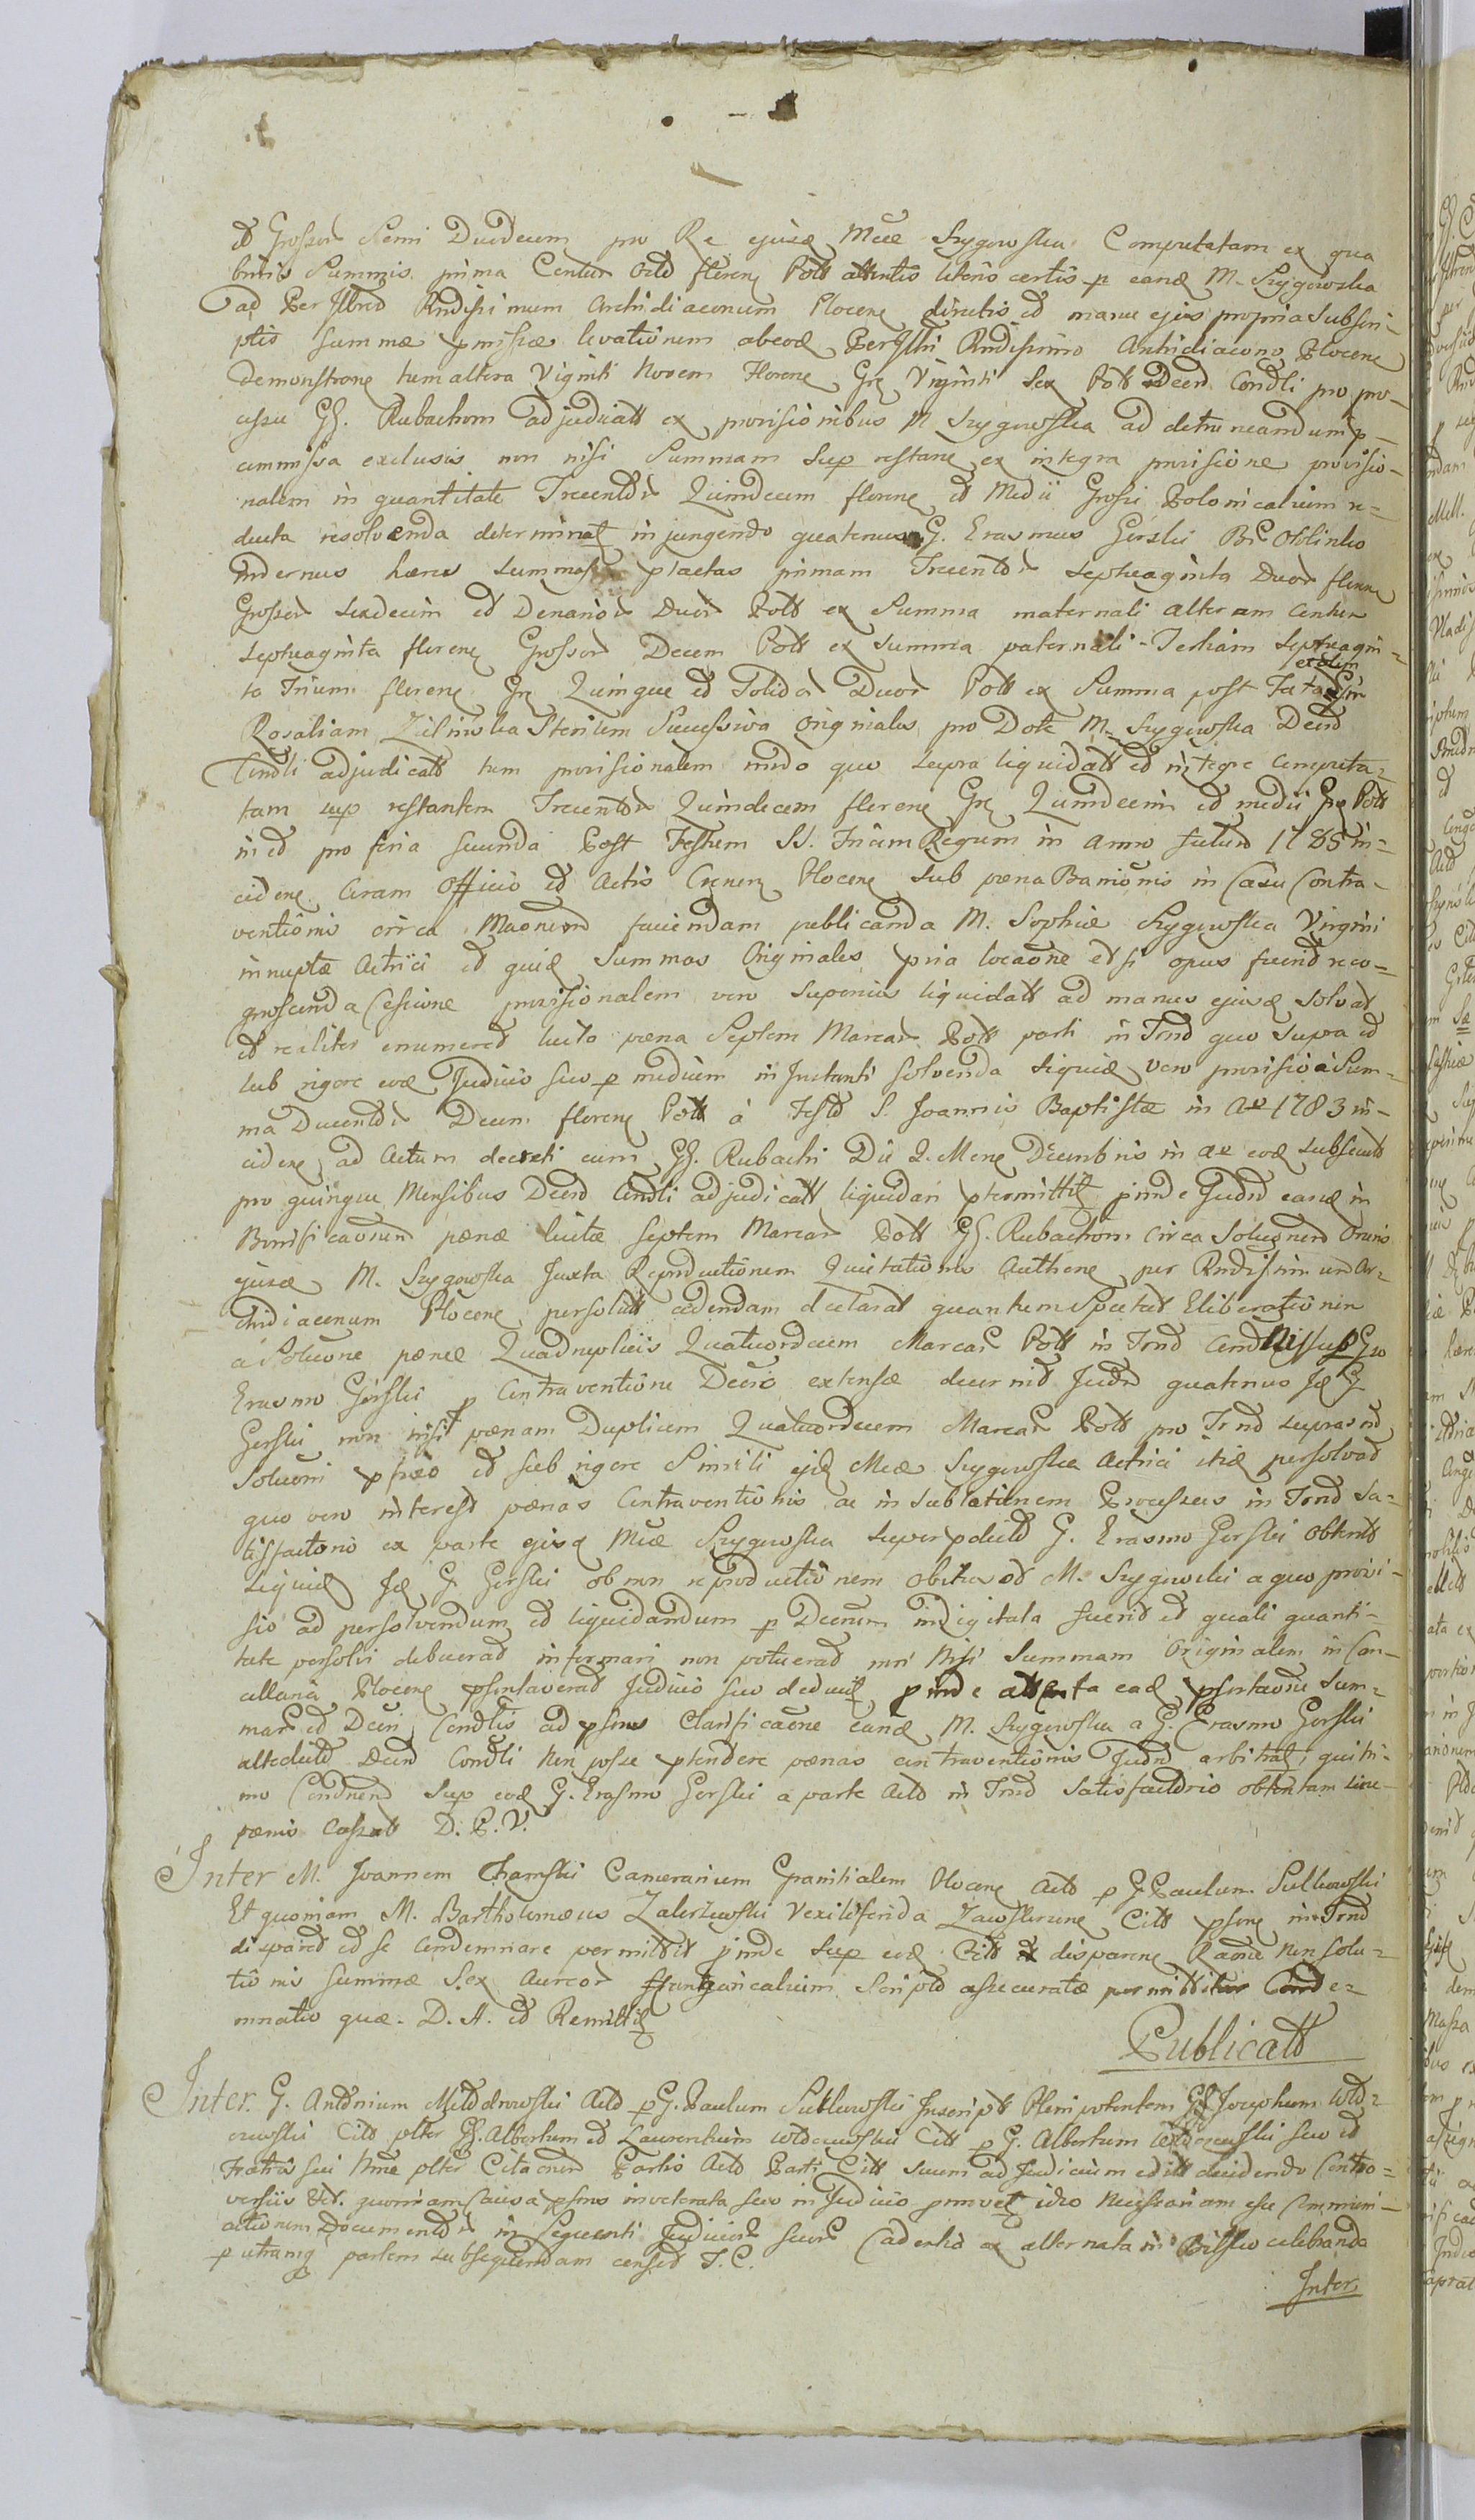 et Grossor Semi Duodecim pro Re ejusd Mcae Szygowska Computatam ex qua
binis Summis prima Centum Octo floren Poll attentis literis certis p eand M. Szygowska
ad Per Illred Rndissimum Archidiaconum Plocen directis et manu ejus propria Subscri-
ptis summae pmissae levationem ab eod PerIllri Rndissimo Archidiacono Plocen
Demonstran tum altera Viginti Novem Floren Gr Viginti Sex Poll Decr Condli pro pro-
cessu GG. Rubachom adjudicatt ex provisionibus M Szygowska ad detruncandum p-
cummissa exclusis non nisi Summam Sup restan ex integra provisione provisio-
nalem in quantitate Trecentor Quindecim floren et Medii Grossi Polonicalium re-
ducta resolvenda determinat injungendo quatenus G. Erasmus Gorski
modernus haeres summas ptactas primam Trecentor Septuaginta Duor floren
Grossor Sexdecim et Denarior Duor Poll ex Summa maternali alteram Centum
Septuaginta floren Grossor Decem Poll ex Summa paternali Tertiam Septuagin-
ta Trium floren Gr Quinque et Solidor Duor Poll ex Summa post Fata
Rosaliam Zielinska Sterilem Successiva Originales pro Dote M. Szygowska Decr
Condli adjudicatt tum provisionalem modo quo supra liquidatt et integre computa-
tam sup restantem Trecentor Quindecem floren Gr Quindecim et medii Gr Poll
in et pro feria secunda Post Festum SS. Trium Regum in anno futuro 1785 in-
ciden Coram Officio et Actis Castren Plocen Sub poena Banionis in Casu Contra-
ventionis circa Maonem faciendam publicanda M. Sophiae Szygowska Virgini
innuptae Actrici et quid Summas Originales pria locaone et si opus fuerit reco-
gnoscenda Cessione provisionalem vero Superius liquidatt ad manus ejusd Solvat
et realiter enumeret lucto poena Septem Marcar Poll parti in Trmo quo Supra et
sub rigore eod Judicio suo p medium in Juctanti solvenda Siquid vero provisio a Sum-
ma Ducentor Decem floren Poll a Festo S. Joannis Baptistae in Ao 1783 in-
ciden ad Actum decreti cum GG. Rubachi Die 2. Mens Decembris in ao eod subsecuti
pro quinque Mensibus Decr Condli adjudicatt liquidari ptermittit proinde Judm eand in
Bonificaonem poenae luitae Septem Marcar Poll GG. Rubachom circa Soluonem
ejusd M. Szygowska Juxta Reproductionem Quietationis Authen per Rndissimum Ar-
chidiaconum Plocen persolutt cedendam declarat quantum Spectat Eliberationem
a Soluone poenae Quadruplicis Quatuordecim Marcar Poll in Trmo
Erasmo Gorski p Contraventione Decri extensae decernit Judm quatenus Jd G
Gorski non nisi poenam Duplicem Quatuordecem Marcar Poll pro Trmo
Soluoni pfixo et sub rigore Simili ejd Mcae Szygowska Actrici itid persolvat
quo vero interest poenas Contraventionis ac in sublationem Processus in Trmo Sa-
tisfactorio ex parte ejusd Mcae Szygowska super pdicto G. Erasmo Gorski obtenti
Siquid Jd G Gorski ob non reproductionem obitus M. Szygowski a quo provi-
sio ad persolvendum et liquidandum p Decrum indigitata fuerit et quali quanti-
tate persolvi debuerat informari non potuerat nisi Summam Originalem in Can-
cellaria Plocen psentaverat Judicio suo deducit proinde attenta ead psentaone Sum-
mar et Decri Condlis ad psens Clarificaone eand M. Szygowska a G. Erasmo Gorski
altedicto Decr Condli Non posse ptendere poenas contraventionis Judm arbitrat, qui ni-
mo Condnem Sup eod G. Erasmo Gorski a parte Acto in Trmo Satisfactorio obtentam sine
poenis Cassatt D. P. V.
Inter M. Joannem Chamski Camerarium Granitialem Plocen Acto p G. Paulum Sulkowski
Et quoniam M. Bartholomaeus Zaleszewski Vexiliferida Zawskrzen Citt psens in Trmo
disparet et se condemnare permittit proinde Sup eod Citt disparen Raone Non solu-
tionis Summae Sex Aureor Hungaricalium Scripto assecuratae permittitur Conde-
mnatio quae. D. A. et Remittit
Publicatt
Inter G. Antonium Mlodzianowski Acto p G. Paulum Sulkowski Inscript Plenipotentem GG Josephum
Citt plter GG. Albertum et Laurentium Citt p G. Albertum suo et
Fratris sui Nne plter Citaonem Partis Acto Parti Citt suum ad Judicium editt decidendo Contro-
versiis Et. quoniam Causa psens inveterata suo in Judicio promovet ideo Necessariam esse Communi-
cationem Documentor in Sequenti Judicior suor Cadentia ex alternata in Bielsko celebranda
p utramq partem subsequendam censet T. C.
Inter